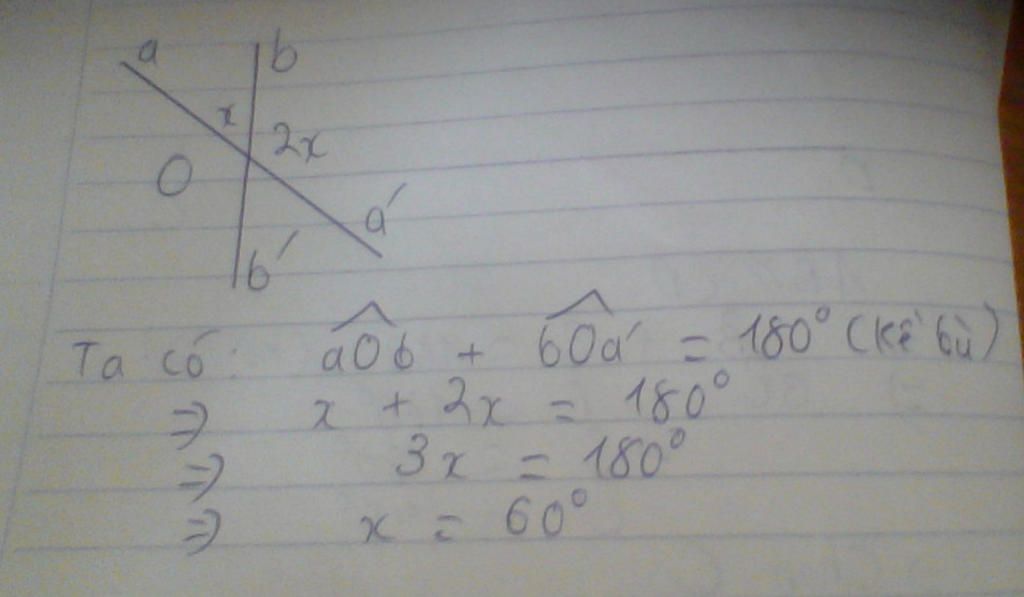 a b
x
2x
O
a'
b'
Ta có: aOb + bOa' = 180° (kề bù)
⇒ x + 2x = 180°
⇒ 3x = 180°
⇒ x = 60°